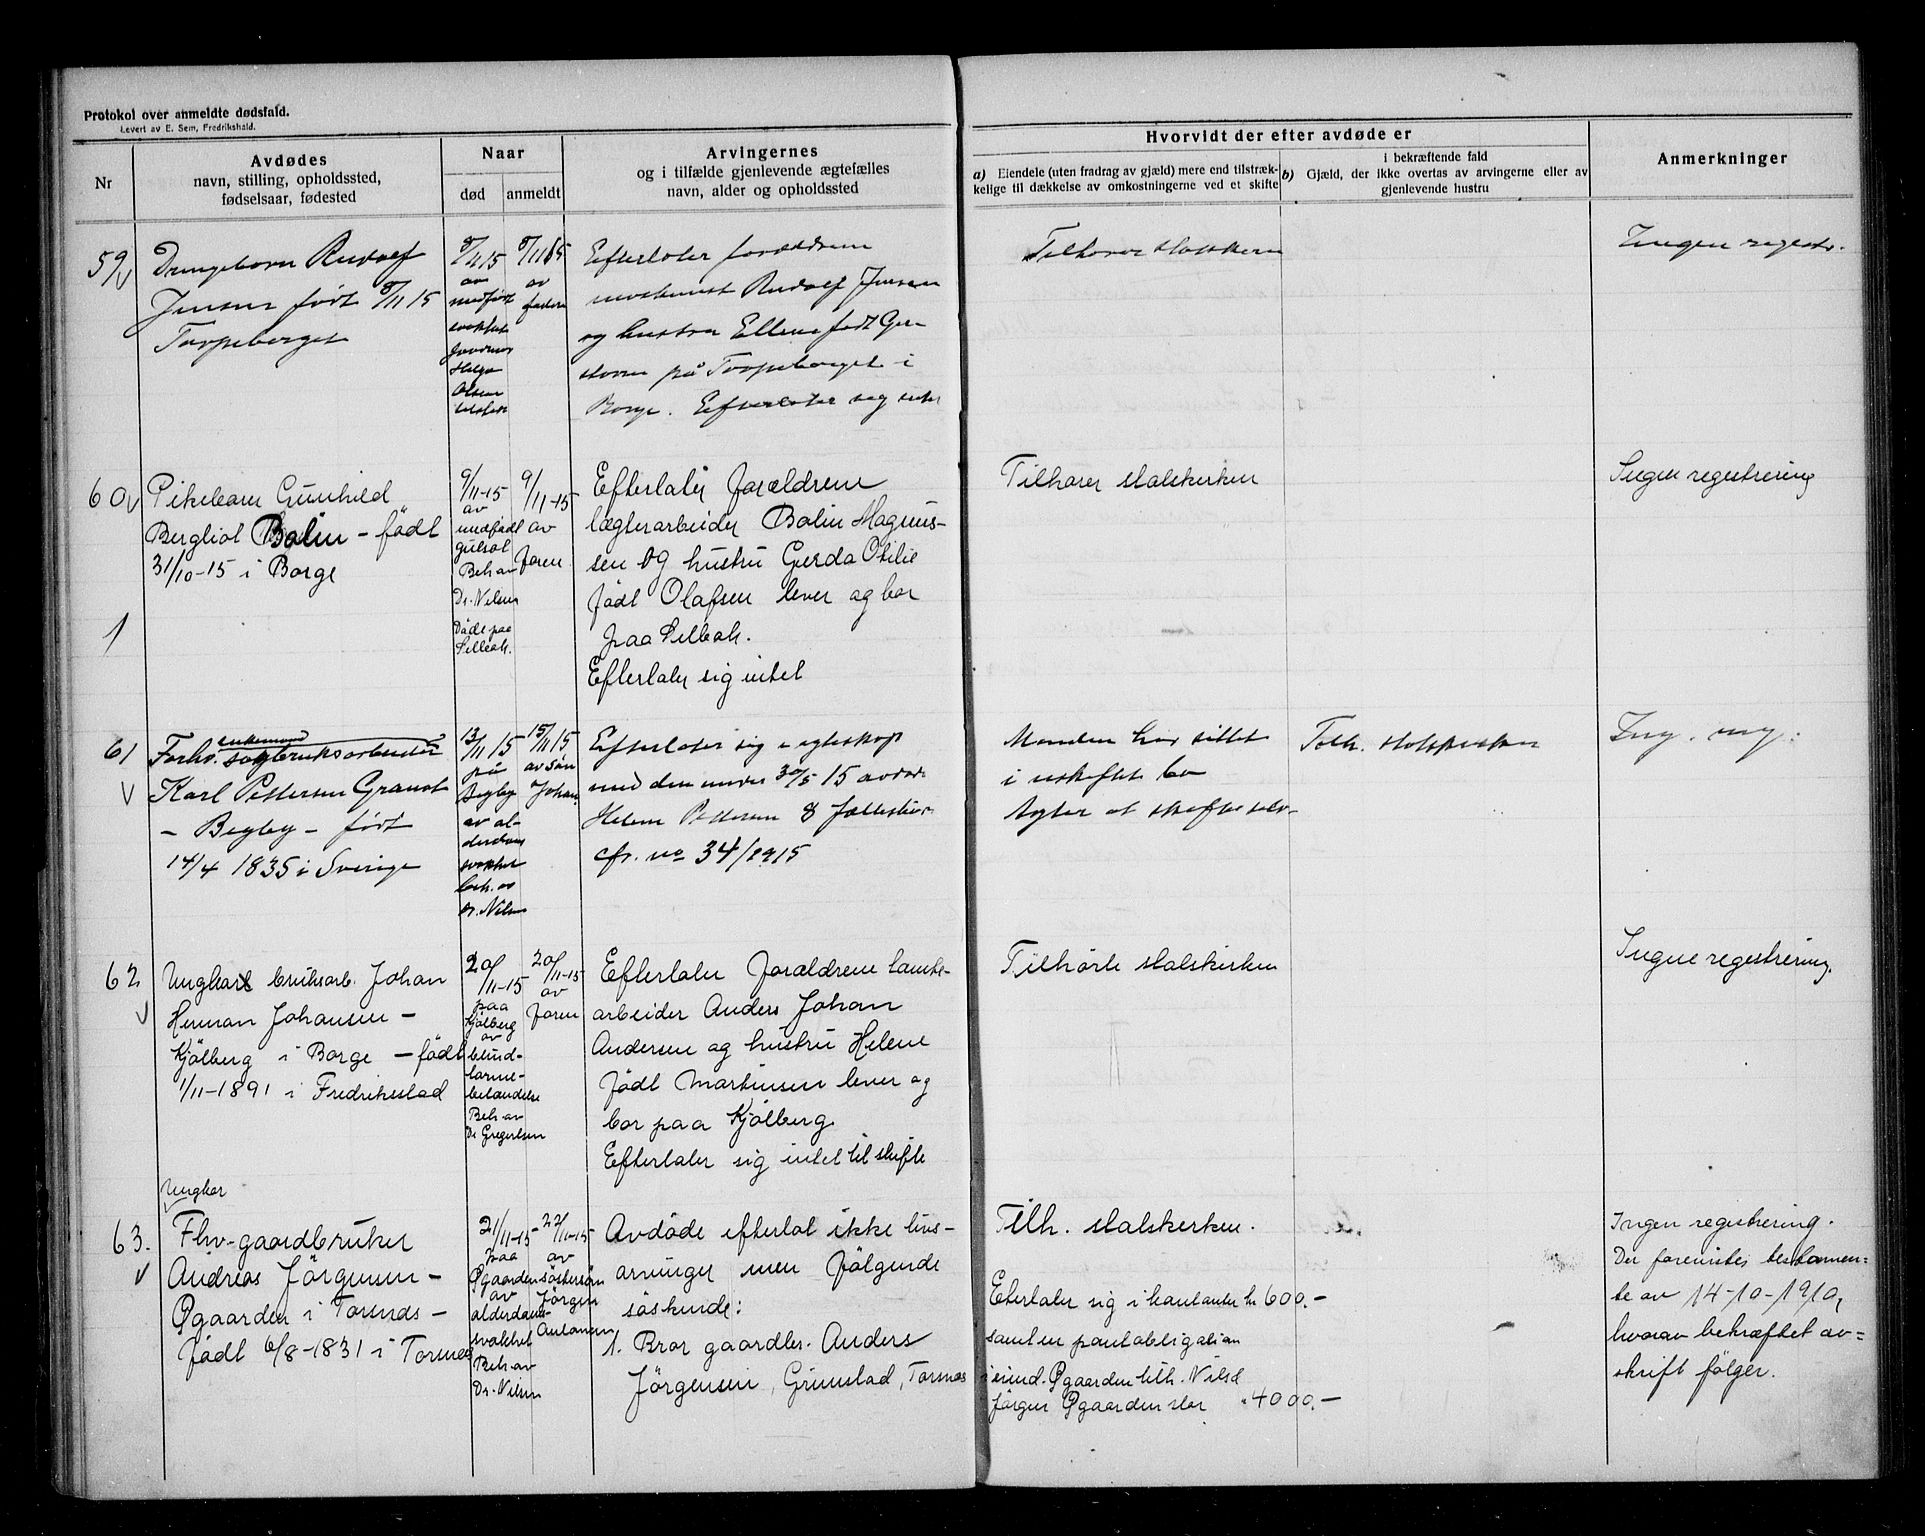 Protokol over anmeldte dødsfald.
Levert av E. Sem, Fredrikshald.
Nr
Avdødes
navn, stilling, opholdssted,
fødselsaar, fødested
Naar
død
anmeldt
Arvingernes
og i tilfælde gjenlevende ægtefælles
navn, alder og opholdssted
Hvorvidt der efter avdøde er
a) Eiendele (uten fradrag av gjæld) mere end tilstræk-
kelige til dækkelse av omkostningerne ved et skifte
i bekræftende fald
b) Gjæld, der ikke overtas av arvingerne eller av
gjenlevende hustru
Anmerkninger
59
Drengebarn Rudolf
Jensen født 8/11 15
Torpeberget
8/11 15
av
medfødt
svakhet
Jordmor
Helga
Olsen
8/11 15
av
faderen
Efterlater forældrene
maskinist Rudolf Jensen
og hustru Ellen født
på Torpeberget i
Borge. Efterlater sig intet
Tilhører statskirken
Ingen registr.
60
Pikebarn Gunhild
Bergliot Bolin – født
31/10-15 i Borge
1
9/11-15
av
medfødt
gulsot
Beh av
Dr. Nilsen
Döde paa
Selbak.
9/11-15
av
faren
Efterlater forældrene
lægterarbeider Bolin Magnus-
sen og hustru Gerda Otilie
født Olafsen lever og bor
paa Selbak.
Efterlater sig intet
Tilhører statskirken
Ingen registrering
61
enkemand
Forhv. sagbruksarbeider
Karl Pettersen Granat
– Begby – født
14/4 1835 i Sverige
13/11 15
på
Begby
av al-
derdoms
svakhet
beh. av
Dr. Nilsen
15/11 15
av søn
Johan
Efterlater sig i egteskap
med den under 30/5 15 avdøde
Helene Pettersen 8 fællesbarn
cfr. no 34/1915
Manden har sittet
i uskiftet bo
Agter at skifte selv
Tilh. statskirken
Ing. reg.
62
Ungkarl bruksarb. Johan
Herman Johansen –
Kjölberg i Borge – född
1/11-1891 i Fredrikstad
20/11-15
paa
Kjölberg
av
blind-
tarms-
betændelse
Beh av
Dr Gregertsen
20/11-15
av
faren
Efterlater forældrene tomte-
arbeider Anders Johan
Andersen og hustru Helene
født Martinsen lever og
bor paa Kjölberg.
Efterlater sig intet til skifte
Tilhörte statskirken
Ingen registrering.
63.
Ungkar
Fhv. gaardbruker
Andreas Jörgensen –
Øgaarden i Torsnæs –
født 6/8-1831 i Torsnæs
21/11-15
paa
Øgaarden
av
alderdoms
svakhet
Beh av
Dr. Nilsen
22/11-15
av
söstersön
Jörgen
Antonsen
Avdöde efterlot ikke livs-
arvinger men følgende
söskende:
1. Bror gaardbr. Anders
Jörgensen, Grimstad, Torsnæs
Tilh. statskirken.
Eterlater sig i kontanter kr 600.–
samt en pantobligation
i eiend. Øgaarden tilh. Nils
Jörgen Øgaarden stor " 4000.–
Ingen registrering.
Der forevistes testamen-
te av 14-10-1910,
hvorav bekræftet av-
skrift följer.